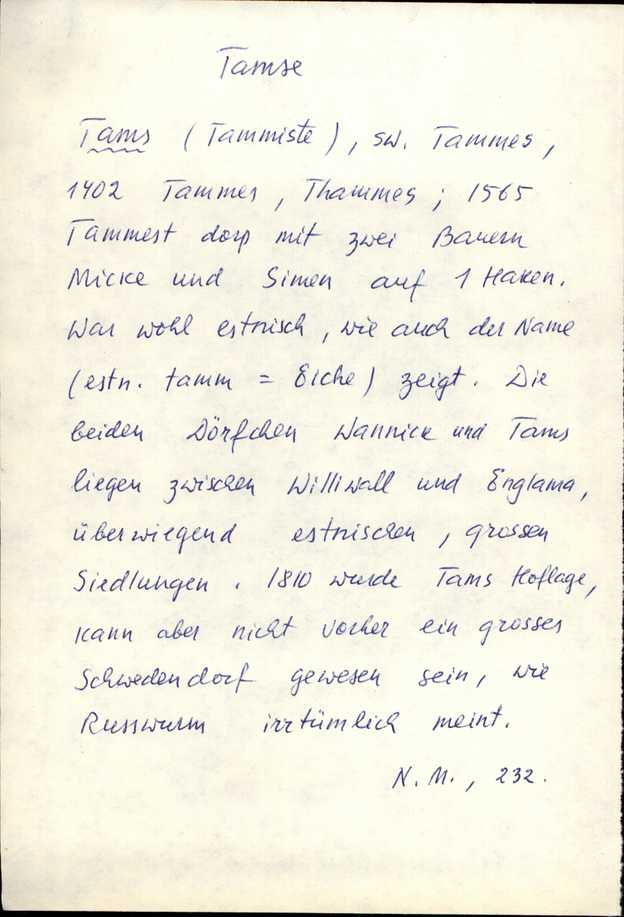 Tamse
Tams (Tammiste), sw. Tammes,
1402 Tammes, Thammes; 1565
Tammest dorp mit zwei Bauern
Micke und Simen auf 1 Haken.
War wohl estnisch, wie auch der Name
(estn. tamm = Eiche) zeigt. Die
beiden Dörfchen Wannick und Tams
liegen zwischen Williwall und Englama,
überwiegend estnischen, grossen
Siedlungen. 1810 wurde Tams Hoflage,
kann aber nicht vorher ein grosses
Schwedendorf gewesen sein, wie
Russwurm irrtümlich meint.
N.M., 232.